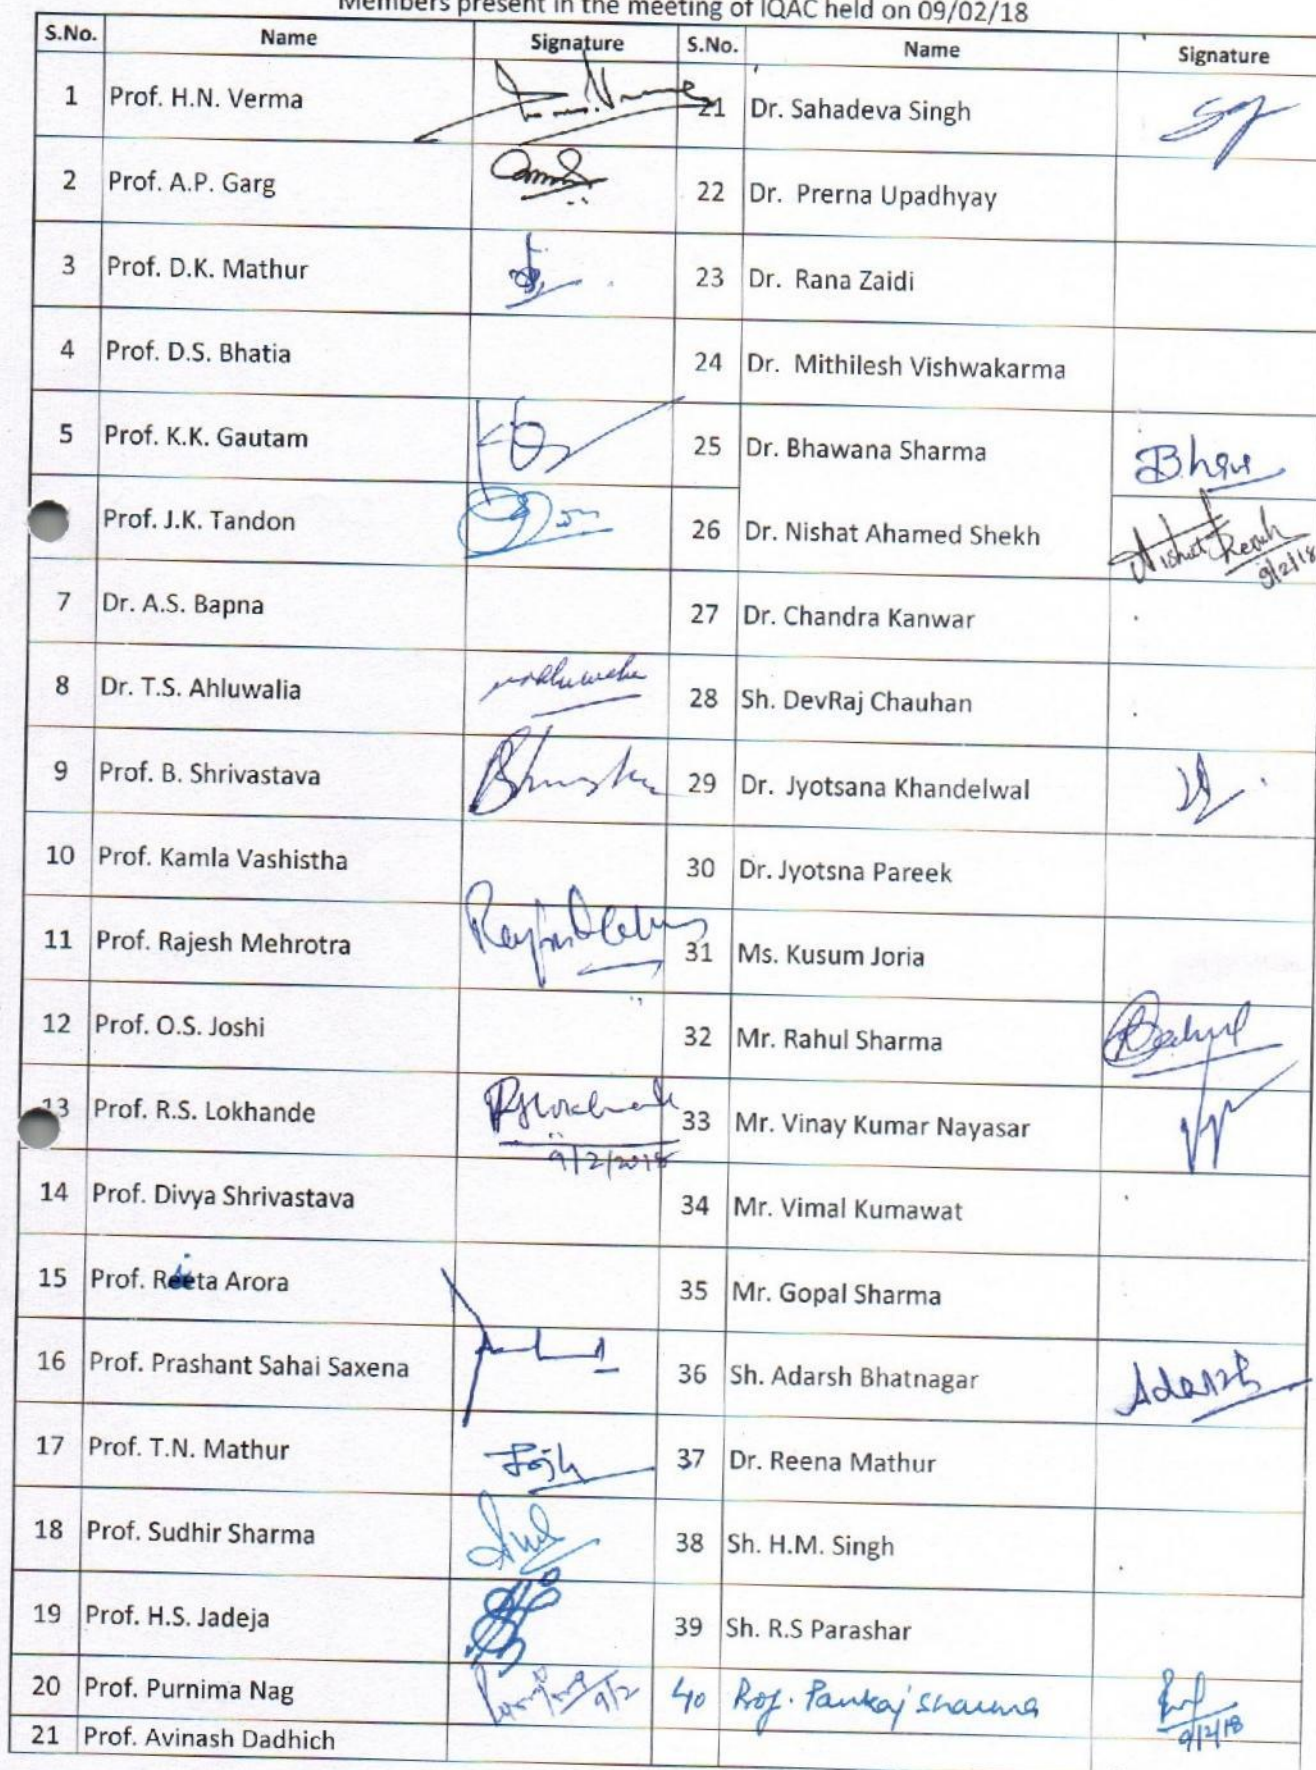 Members present in the meeting of IQAC held on 09/02/18
S.No. Name Signature S.No. Name Signature
1 Prof. H.N. Verma 21 Dr. Sahadeva Singh
2 Prof. A.P. Garg 22 Dr. Prerna Upadhyay
3 Prof. D.K. Mathur 23 Dr. Rana Zaidi
4 Prof. D.S. Bhatia 24 Dr. Mithilesh Vishwakarma
5 Prof. K.K. Gautam 25 Dr. Bhawana Sharma
Prof. J.K. Tandon 26 Dr. Nishat Ahamed Shekh 9/2/18
7 Dr. A.S. Bapna 27 Dr. Chandra Kanwar
8 Dr. T.S. Ahluwalia 28 Sh. DevRaj Chauhan
9 Prof. B. Shrivastava 29 Dr. Jyotsana Khandelwal
10 Prof. Kamla Vashistha 30 Dr. Jyotsna Pareek
11 Prof. Rajesh Mehrotra 31 Ms. Kusum Joria
12 Prof. O.S. Joshi 32 Mr. Rahul Sharma
13 Prof. R.S. Lokhande 9/2/2018 33 Mr. Vinay Kumar Nayasar
14 Prof. Divya Shrivastava 34 Mr. Vimal Kumawat
15 Prof. Reeta Arora 35 Mr. Gopal Sharma
16 Prof. Prashant Sahai Saxena 36 Sh. Adarsh Bhatnagar Adarsh
17 Prof. T.N. Mathur 37 Dr. Reena Mathur
18 Prof. Sudhir Sharma 38 Sh. H.M. Singh
19 Prof. H.S. Jadeja 39 Sh. R.S Parashar
20 Prof. Purnima Nag 9/2 40 Prof. Pankaj Sharma 9/2/18
21 Prof. Avinash Dadhich